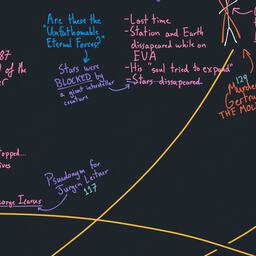 Are these the
"Unfathomable
Eternal Forces?"
Stars were
BLOCKED by
a giant interstellar
creature
-Lost time
-Station and Earth
disappeared while on
EVA
-His "soul tried to expand"
-Stars dissapeared
87
of the
129
Murder
Gertru
THE MOL
topped...
ives
Pseudonym for
Jurgen Leitner
117
eorge Icarus